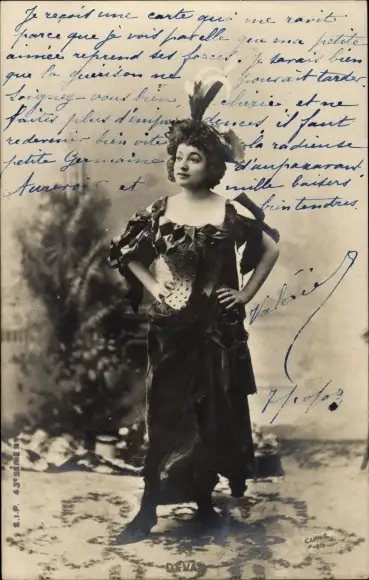 Je reçois une carte qui me ravit
parce que je vois par elle que ma petite
aimée reprend ses forces. Je savais bien
que la guérison ne pouvait tarder
Soignez-vous bien, chérie et ne
faites plus d'imprudences, il faut
redevenir bien vite la radieuse
petite Germaine d'auparavant.
Aurevoir et mille baisers
bien tendres.
Valérie
S.I.P. 43e SÉRIE No
DEVAL
PARIS